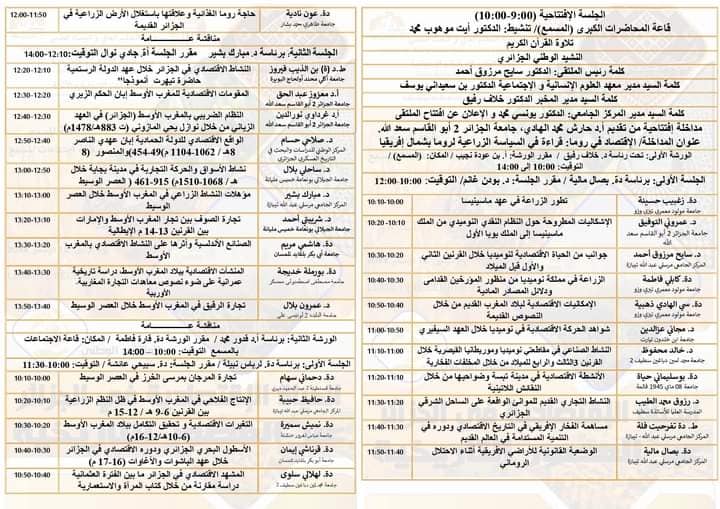 الجلسة الإفتتاحية (9:00-10:00)
قاعة المحاضرات الكبرى (المسمع)/ تنشيط: الدكتور أيت موهوب محمد
تلاوة القرآن الكريم
النشيد الوطني الجزائري
كلمة رئيس الملتقى: الدكتور سايح مرزوق أحمد
كلمة السيد مدير معهد العلوم الإنسانية و الاجتماعية الدكتور بن سعيداني يوسف
كلمة السيد مدير المخبر الدكتور خلاف رفيق
كلمة السيد مدير المركز الجامعي: الدكتور يونسي محمد و الإعلان عن افتتاح الملتقى
مداخلة إفتتاحية من تقديم أ.د حارش محمد الهادي، جامعة الجزائر 2 أبو القاسم سعد الله.
عنوان المداخلة/ الإقتصاد في روما: قراءة في السياسة الزراعية لروما بشمال إفريقيا
الورشة الأولى: تحت رئاسة د. خلاف رفيق / مقرر الورشة: أ. بن عودة نجيب / المكان: (المسمع)
التوقيت: 10:00 إلى 14:00
الجلسة الأولى: برئاسة دة, بصال مالية / مقرر الجلسة: د. بودن غانم/ التوقيت: 10:00-12:00
دة. زغبيب حسينة
جامعة مولود معمري تيزي وزو
تطور الزراعة في عهد ماسينيسا
10:10-10:00
د. عمروني التوفيق
جامعة الجزائر 2 أبو القاسم سعد الله
الإشكاليات المطروحة حول النظام النقدي النوميدي من الملك ماسينيسا إلى الملك يوبا الأول
10:20 -10:10
د. سايح مرزوق أحمد
المركز الجامعي مرسلي عبد الله تيبازة
جوانب من الحياة الاقتصادية لنوميديا خلال القرنين الثاني والأول قبل الميلاد
10:30-10:20
دة. كابلي فاطمة
جامعة مولود معمري تيزي وزو
الزراعة في مملكة نوميديا من منظور المؤرخين القدامى ودلائل المصادر المادية
10:40-10:30
دة. سي الهادي ذهبية
جامعة مولود معمري تيزي وزو
الإمكانيات الاقتصادية لبلاد المغرب القديم من خلال النصوص القديمة
10:50-10:40
د. مجاني عزالدين
جامعة ابن خلدون تيارت
شواهد الحركة الاقتصادية في نوميديا خلال العهد السيفيري
11:00-10:50
د. خالد محفوظ
النشاط الصناعي في مقاطعتي نوميديا وموريطانيا القيصرية خلال القرنين 3الثالث والرابع للميلاد من خلال المخلفات الفخارية
11:10-11:00
دة. بوسليماني حياة
جامعة 08 ماي 1945 قالمة
الأنشطة الاقتصادية في مدينة تبسة وضواحيها من خلال النقائش اللاتينية
11:20-11:10
د. رزوق محمد الطيب
المدرسة العليا للأساتذة سطيف
النشاط التجاري القديم للموانئ الواقعة على الساحل الشرقي الجزائري
11:30-11:20
ط. دة تفرحيت فلة
المركز الجامعي مرسلي عبد الله - تيبازة
مساهمة الفخار الإفريقي في التاريخ الاقتصادي ودوره في التنمية المستدامة في العالم القديم
11:40-11:30
دة. بصال مالية
المركز الجامعي مرسلي عبد الله تيبازة
الوضعية القانونية للأراضي الإفريقية أثناء الاحتلال الروماني
11:50-11:40
دة. عون نادية
جامعة طاهري محمد بشار
حاجة روما الغذائية وعلاقتها باستغلال الأرض الزراعية في الجزائر القديمة
12:00-11:50
مناقشة عــــامة
الجلسة الثانية: برئاسة د. مبارك بشير مقرر الجلسة أة. جادي نوال التوقيت: 12:10-14:00
ط.د (ة) بن الذيب فيروز
جامعة أكلي محند أولحاج البويرة
النشاط الاقتصادي في الجزائر خلال عهد الدولة الرستمية حاضرة تيهرت "أنموذجا"
12:20-12:10
أ.د معزوز عبد الحق
جامعة الجزائر 2 أبو القاسم سعد الله
المقومات الاقتصادية للمغرب الأوسط إبان الحكم الزيري
12:30-12:20
أ.د غرداوي نور الدين
جامعة الجزائر 2 أبو القاسم سعد الله
النظام الضريبي بالمغرب الأوسط (الجزائر) في العهد الزياني من خلال نوازل يحي المازوني (ت 883هـ/1478م)
12:40-12:30
د. صلاحي حسام
الواقع الاقتصادي للدولة الحمادية إبان عهدي الناصر والمنصور (454-498هـ / 1062-1104م)
12:50-12:40
د. ساحلي بلال
نشاط الأسواق والحركة التجارية في مدينة بجاية خلال العصر الوسيط (461-915هـ / 1068-1510م)
13:00-12:50
د. مبارك بشير
المركز الجامعي مرسلي عبد الله تيبازة
مؤهلات النشاط الزراعي في المغرب الأوسط خلال العصر الوسيط
13:10-13:00
د. شريبتي أحمد
جامعة الجيلالي بونعامة خميس مليانة
تجارة الصوف بين تجار المغرب الأوسط والإمارات الإيطالية بين القرنين 13-14 م
13:20-13:10
دة. هاشمي مريم
جامعة أبي بكر بلقايد تلمسان
الصنائع الأندلسية وأثرها على النشاط الاقتصادي بالمغرب الأوسط
13:30-13:20
دة. بورملة خديجة
المنشآت الاقتصادية ببلاد المغرب الأوسط، دراسة تاريخية عمرانية على ضوء نصوص معاهدات التجارة المغاربية الأوربية
13:40-13:30
د. عمرون بلال
تجارة الرقيق في المغرب الأوسط خلال العصر الوسيط
13:50-13:40
مناقشة عــــامة
الورشة الثانية: برئاسة أ.د قدور محمد / مقرر الورشة دة, قارة فاطمة / المكان: قاعة الاجتماعات بالمسمع التوقيت: 10:00 – 14:00
الجلسة الأولى: برئاسة دة, لرباس نبيلة / مقرر الجلسة: دة, سبيحي عائشة / التوقيت: 10:00-11:30
دة. دحماني سهام
تجارة المرجان بمرسى الخرز في العصر الوسيط
10:10-10:00
دة. حافيظ حبيبة
المركز الجامعي مرسلي عبد الله تيبازة
الإنتاج الفلاحي في المغرب الأوسط في ظل النظم الزراعية بين القرنين 6-9 هـ / 12-15 م
10:20-10:10
دة. نميش سميرة
التغيرات الاقتصادية و تحقيق التكامل ببلاد المغرب الأوسط (6-10هـ/12-16م)
10:30-10:20
دة. قرناشي إيمان
جامعة أبي بكر بلقايد تلمسان
الأسطول البحري الجزائري ودوره الاقتصادي في الجزائر خلال عهد الباشوات والأغاوات (16-17 م)
10:40-10:30
دة. لهلالي سلوى
المشهد الاقتصادي في الجزائر ما بين الفترة العثمانية والاستعمارية دراسة مقارنة من خلال كتاب المرآة
10:50-10:40